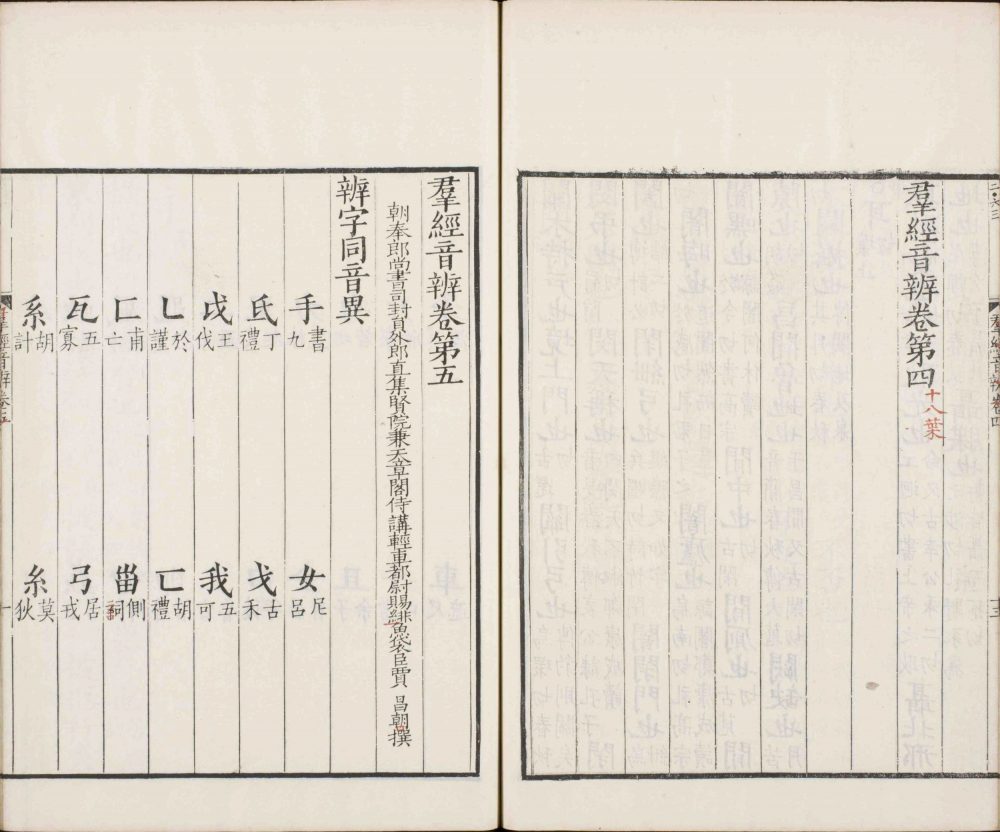 羣經音辨卷第四
十八葉
羣經音辨卷第五
朝奉郎尚書司封員外郎直集賢院兼天章閣侍講輕車都尉賜緋魚袋臣賈 昌朝 撰
辨字同音異
手書九 女尼呂
氐丁禮 戈古禾
戉王伐 我五可
乚於謹 匸胡禮
匚甫亡 甾側詞
瓦五寡 弓居戎
系胡計 糸莫狄